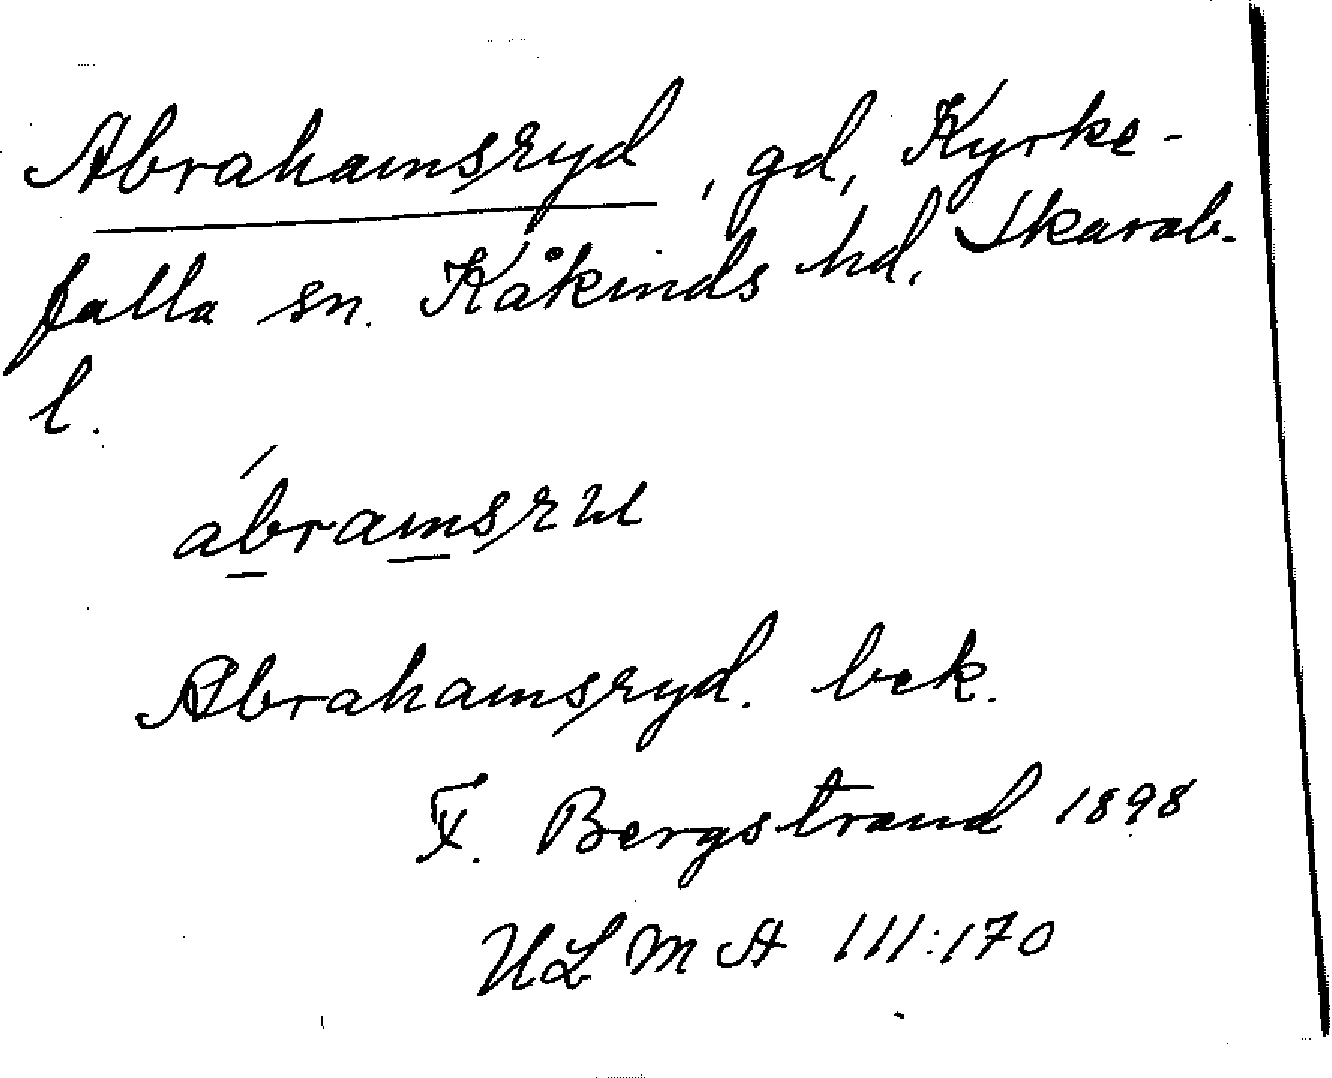 Abrahamsryd, gd, Kyrke-
falla sn. Kåkinds hd, Skarab.
l.
ábramsru
Abrahamsryd. bek.
F. Bergstrand 1898
ULMA 111:170